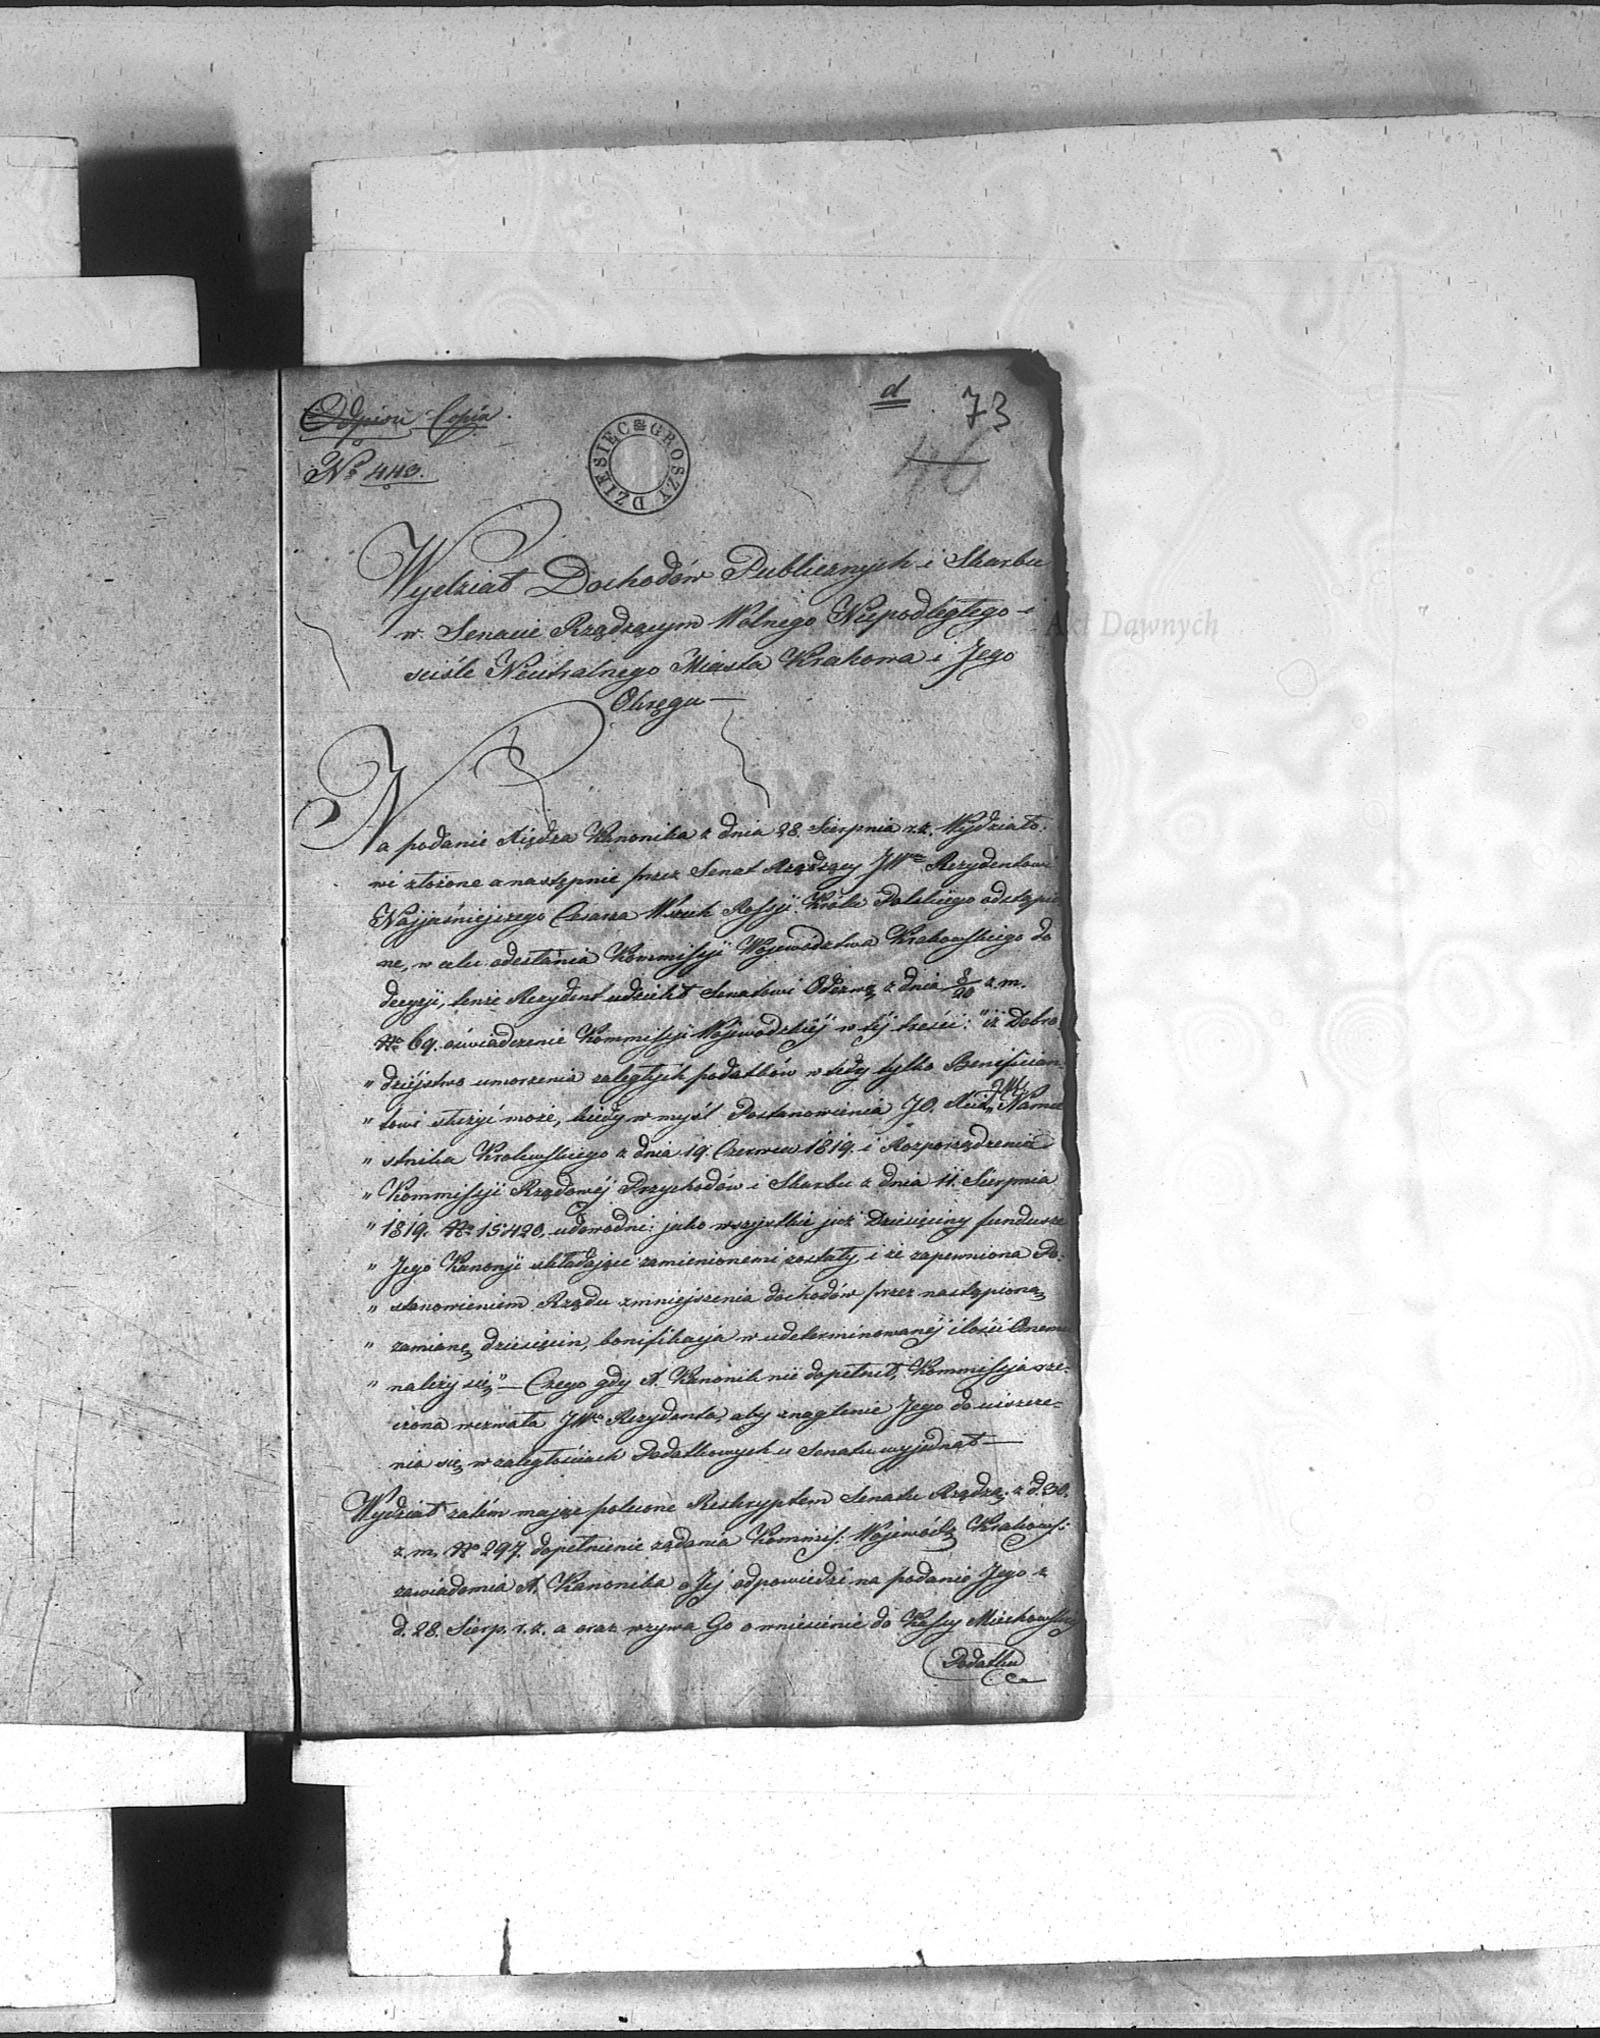 d
73
Odpisu Copia.
No 443.
DZIESIĘĆ GROSZY
Wydział Dochodów Publicznych i Skarbu
w Senacie Rządzącym Wolnego Niepodległego i
ściśle Neutralnego Miasta Krakowa i Jego
Okręgu
Akt Dawnych
Na podanie Xiędza Kanonika z dnia 28. Sierpnia r.z. Wydziało-
wi złożone a następnie przez Senat Rządzący JWmu Rezydentowi
Najjaśniejszego Cesarza Wszech Rossji Króla Polskiego odstąpio
ne, w celu odesłania Kommissji Województwa Krakowskiego do
decyzji, tenże Rezydent udzielił Senatowi Odezwą z dnia 8/20 z.m.
No 69. oświadczenie Kommissji Wojewódzkiej w tej treści: "iż Dobro
" dziejstwo umorzenia zaległych podatków w tedy tylko Benefician-
" towi służyć może, kiedy w myśl Postanowienia JO. Xcia Namie
" stnika Królewskiego z dnia 19. Czerwca 1819. i Rozporządzenia
" Kommissji Rządowej Przychodów i Skarbu z dnia 11. Sierpnia
" 1819. No 15420. udowodni: jako wszystkie już Dziesięciny fundusze
" Jego Kanonji składające zamienionemi zostały i że zapewniona Po-
" stanowieniem Rządu zmniejszenia dochodów przez nastąpioną
" zamianę dziesięcin, bonifikacja w udeterminowanej ilości Onemu
" należy się" — Czego gdy X. Kanonik nie dopełnił, Kommissja rze-
czona wezwała JWo Rezydenta, aby znaglenie Jego do uiszcze-
nia się w zaległościach Podatkowych u Senatu wyjednał —
Wydział zatém mając polecone Reskryptem Senatu Rządzą: z d. 30.
z.m. No 297. dopełnienie żądania Kommis: Wojewódz Krakows:
zawiadomia X. Kanonika o Jej odpowiedzi na podanie Jego z
d. 28. Sierp. r.z. a oraz wzywa Go o wniesienie do Kassy Miechowskiej
Podatku